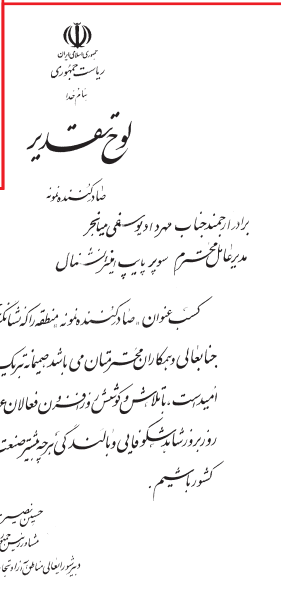 جمهوری اسلامی ایران
ریاست جمهوری
بنام خدا
لوح تقدیر
صادرکننده نمونه
برادر ارجمند جناب مهرداد یوسفی میانجر
مدیرعامل محترم سوپر پایپ اینترنشنال
کسب عنوان «صادرکننده نمونه» منطقه را که نشانگر
جنابعالی و همکاران محترمتان می باشد صمیمانه تبریک
امید است، با تلاش و کوشش روزافزون فعالان
روز بروز شاهد شکوفایی و بالندگی هر چه بیشتر صنعت
کشور باشیم.
حسین نصیری
مشاور رئیس جمهور
دبیر شورایعالی مناطق آزاد